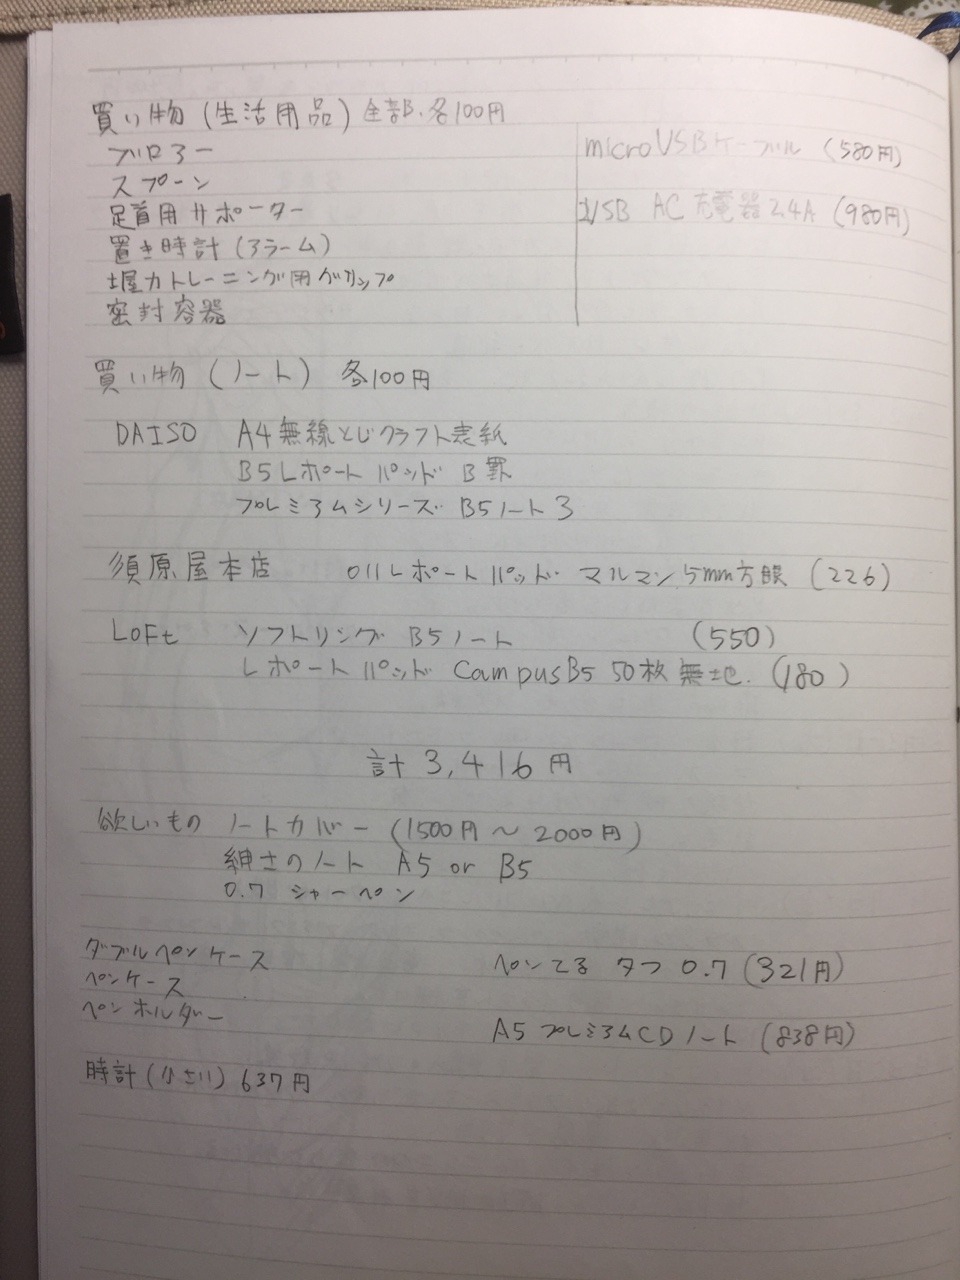 買い物(生活用品)全部.各100円
ブロアー
スプーン
足首用サポーター
置き時計(アラーム)
握力トレーニング用グリップ
密封容器
microUSBケーブル (580円)
USB AC充電器2.4A (980円)
買い物(ノート) 各100円
DAISO A4無線とじクラフト表紙
B5レポートパッド B罫
プレミアムシリーズ B5ノート3
須原屋本店 011レポートパッド マルマン5mm方眼 (226)
LoFt ソフトリング B5ノート (550)
レポートパッド CampusB5 50枚 無地. (180)
計 3,416円
欲しいもの ノートカバー (1500円~2000円)
紳士のノート A5 or B5
0.7 シャーペン
ダブルペンケース
ペンケース
ペンホルダー
ぺんてる タフ 0.7 (321円)
A5 プレミアムCDノート (838円)
時計(小さい) 637円